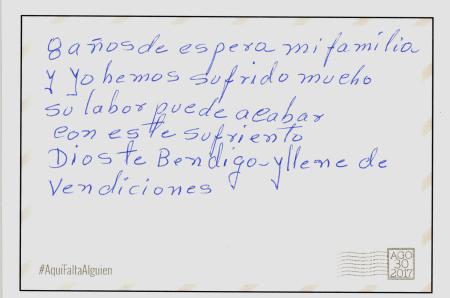 8 años de espera mi familia
y yo hemos sufrido mucho
su labor puede acabar
con este sufriento
Dios te Bendiga y llene de
Vendiciones
#AquíFaltaAlguien
AGO
30
2017